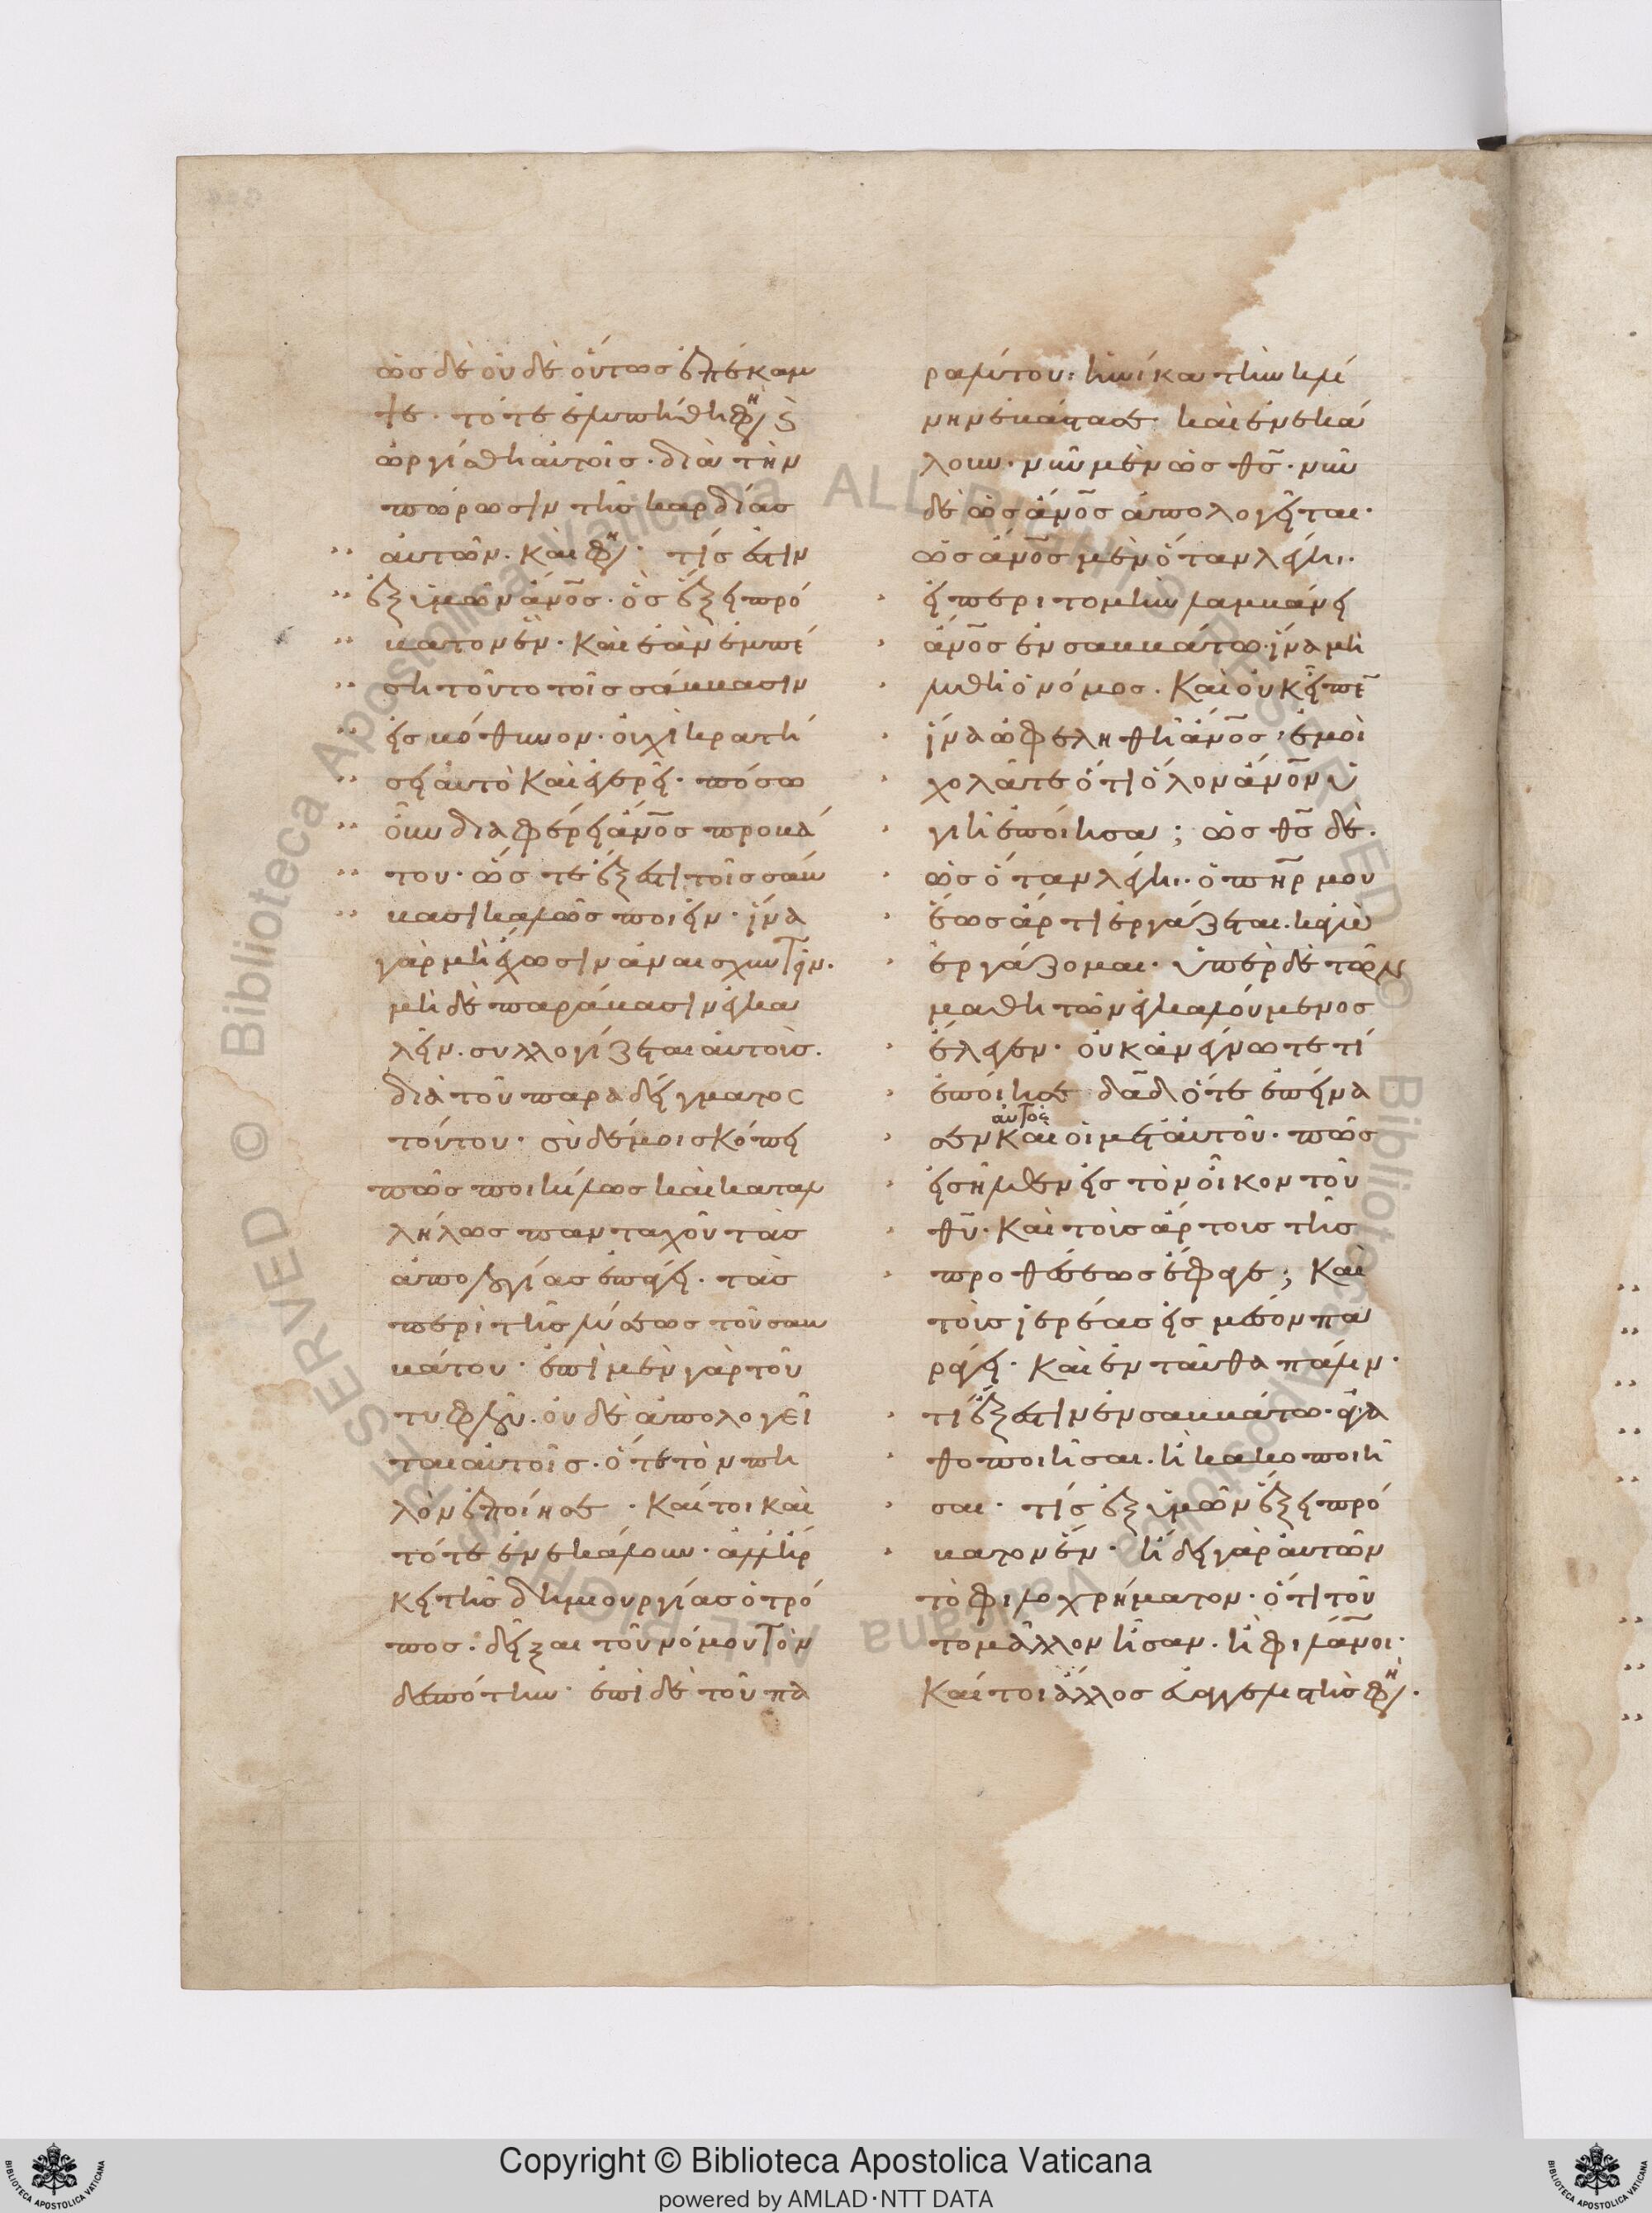 ὡς δὲ οὐδὲ οὕτως ἐπέκαμ
πτε. τότε ἐλυπήθη φη ϛ
ὠργίσθη αὐτοῖς. διὰ τὴν
πώρωσιν τῆς καρδίας
αὐτῶν. καὶ φη. τίς ἐστιν
ἐξ ὑμῶν ἄνος. ὃς ἕξει πρό
βατον ἕν. καὶ ἐὰν ἐμπέ
ση τοῦτο τοῖς σάββασιν
εἰς βόθυνον. οὐχὶ κρατή
σει αὐτὸ καὶ ἐγερεῖ. πόσω
οὖν διαφέρει ἄνος προβά
του. ὥστε ἔξεστι τοῖς σάβ
βασι καλῶς ποιεῖν. ἵνα
γὰρ μὴ ἔχωσιν ἀναισχυντεῖν.
μὴ δὲ παράβασιν ἐγκα
λεῖν. συλλογίζεται αὐτοῖς.
διὰ τοῦ παραδείγματος
τούτου. σὺ δέ μοι σκόπει
πῶς ποικίλως καὶ καταλ
λήλως πανταχοῦ τὰς
ἀπολογίας ἐπάγει. τὰς
περὶ τῆς λύσεως τοῦ σαβ
βάτου. ἐπὶ μὲν γὰρ τοῦ
τυφλοῦ. οὐδὲ ἀπολογεῖ
ται αὐτοῖς. ὅτε τὸν πη
λὸν ἐποίησε. καίτοι καὶ
τότε ἐνεκάλουν. ἀλλ' ἤρ
κει τῆς δημιουργίας ὁ τρό
πος. δεῖξαι τοῦ νόμου τὸν
δεσπότην. ἐπὶ δὲ τοῦ πα
ραλύτου. ἡνίκα τὴν κλί
νην ἐβάστασε καὶ ἐνεκά
λουν. νῦν μὲν ὡς θς. νῦν
δὲ ὡς ἄνος ἀπολογεῖται.
ὡς ἄνος μὲν ὅταν λέγη.
εἰ περιτομὴν λαμβάνει
ἄνος ἐν σαββάτω. ἵνα μὴ
λυθῆ ὁ νόμος. καὶ οὐκ εἶπε
ἵνα ὠφεληθῆ ἄνος. ἐμοὶ
χολᾶτε ὅτι ὅλον ἄνον ὑ
γιῆ ἐποίησα; ὡς θς δὲ.
ὡς ὅταν λέγη. ὁ πηρ μου
ἕως ἄρτι ἐργάζεται. κἀγὼ
ἐργάζομαι. ὑπὲρ δὲ τῶν
μαθητῶν ἐγκαλούμενος
ἔλεγεν. οὐκ ἀνέγνωτε τί
ἐποίησε δαδ ὅτε ἐπείνα
αὐτὸς
σεν καὶ οἱ μετ' αὐτοῦ. πῶς
εἰσῆλθεν εἰς τὸν οἶκον τοῦ
θυ. καὶ τοὺς ἄρτους τῆς
προθέσεως ἔφαγε; καὶ
τοὺς ἱερέας εἰς μέσον πα
ράγει. καὶ ἐνταῦθα πάλιν.
τί ἔξεστιν ἐν σαββάτω. ἀγα
θοποιῆσαι. ἢ κακοποιῆ
σαι. τίς ἐξ ὑμῶν ἕξει πρό
βατον ἕν. ἤδει γὰρ αὐτῶν
τὸ φιλοχρήματον. ὅτι τοῦ
το μᾶλλον ἦσαν. ἢ φιλάνοι.
καίτοι ἄλλος εὐαγγελιστής φη.